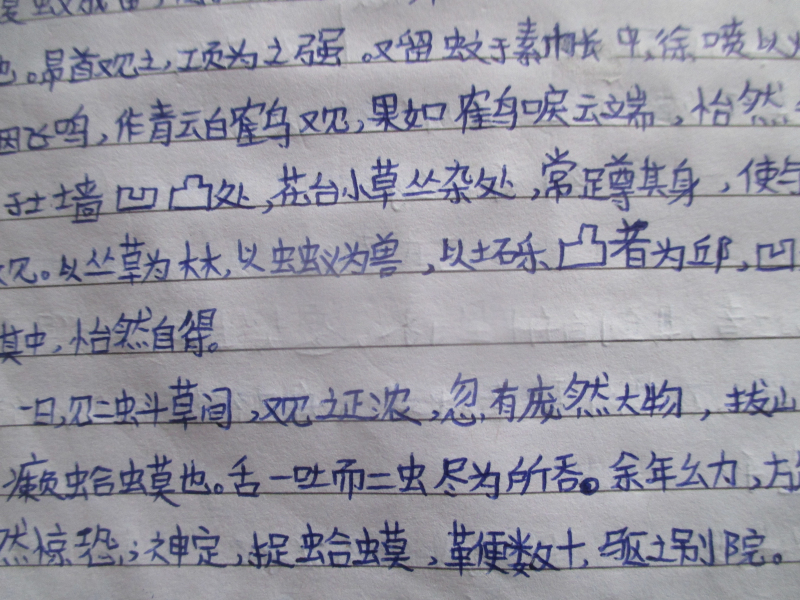 也。昂首观之,项为之强。又留蚊于素帐中,徐喷以
飞鸣,作青云白鹤观,果如鹤唳云端,怡然
于土墙凹凸处,花台小草丛杂处,常蹲其身,使与
观。以丛草为林,以虫蚁为兽,以土砾凸者为邱,凹
其中,怡然自得。
一日,见二虫斗草间,观之正浓,忽有庞然大物,拔山
癞蛤蟆也。舌一吐而二虫尽为所吞。余年幼,方
然惊恐;神定,捉蛤蟆,鞭数十,驱之别院。